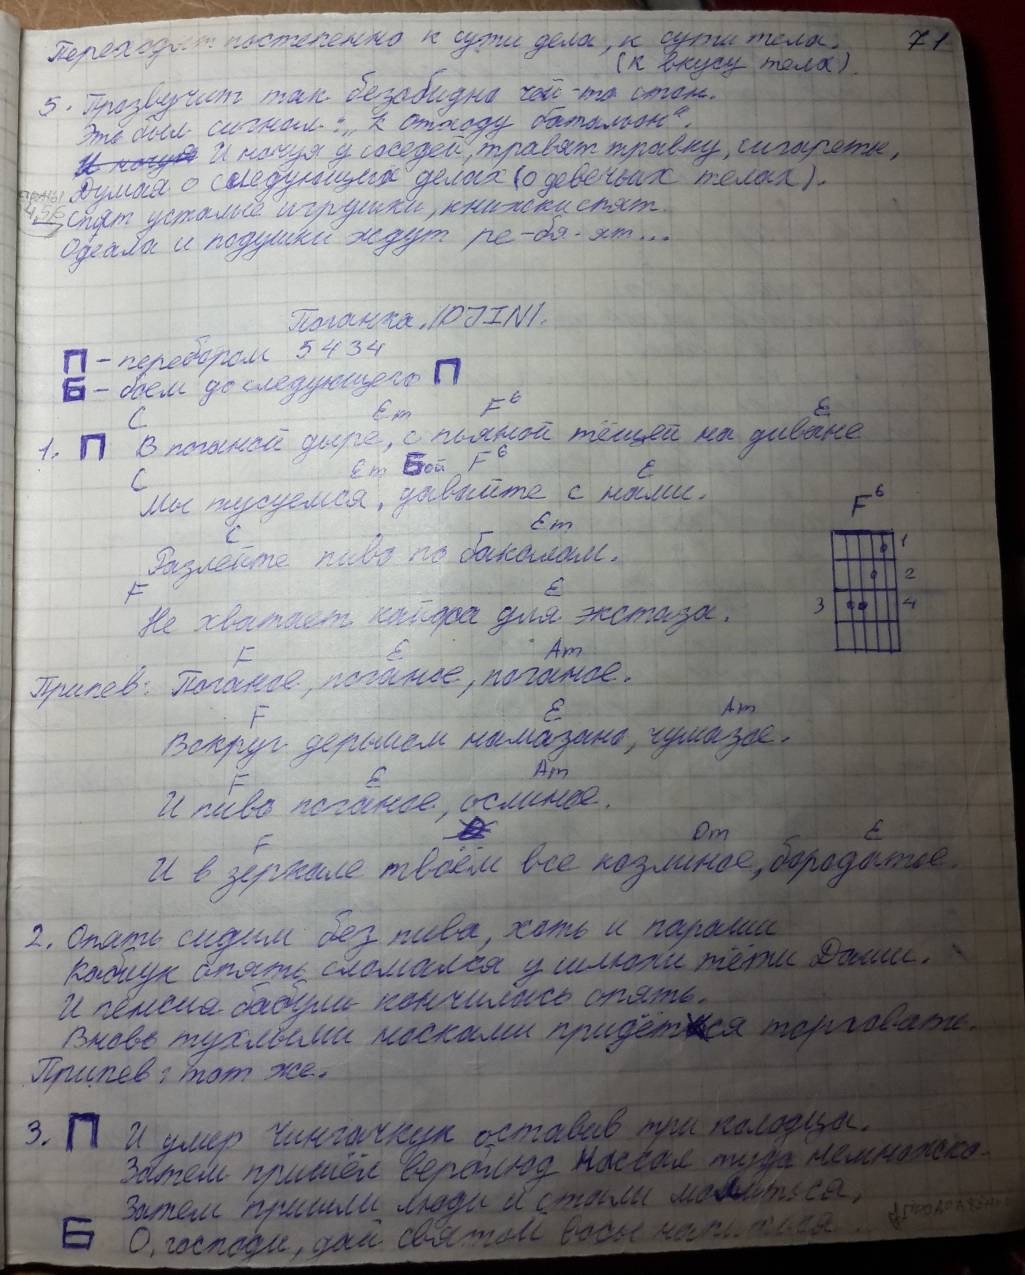 Переходят постепенно к сути дела, к сути тела. 71
(к вкусу тела).
5. Прозвучит так безобидно чей-то стон.
Это был сигнал: „К отходу батальон“.
И ночуя И ночуя у соседей, травят травку, сигареты,
Думая о следующих делах (о девечьих телах).
Спят усталые игрушки, книжки спят.
Одеала и подушки ждут ре-бя-ят...
Поганка. (DJIN).
П – перебором 5434
Б – боем до следующего П
C Em F6 E
1. П В поганой дыре, с пьяной тёщей на диване
C Em Бой F6 E
Мы тусуемся, давайте с нами.
C Em
Разлейте пиво по бакалам.
F E
Не хватает кайфа для экстаза.
F6
1
2
3 4
F E Am
Припев: Поганое, поганое, поганое.
F E Am
Вокруг дерьмом намазано, чумазое.
F E Am
И пиво поганое, ослиное.
F Dm E
И в зеркале твоём все козлиное, бородатое.
2. Опять сидим без пива, хоть и параши
Каблук опять сломался у шлюхи тёти Даши.
И пенсия бабули кончилась опять.
Вновь тухлыми носками придётся торговать.
Припев: тот же.
3. П И умер Чингачкук оставив три колодца.
Затем пришёл верблюд нассал туда немножко.
Затем пришли люди и стали молиться,
Б О, господи, дай святой воды напиться